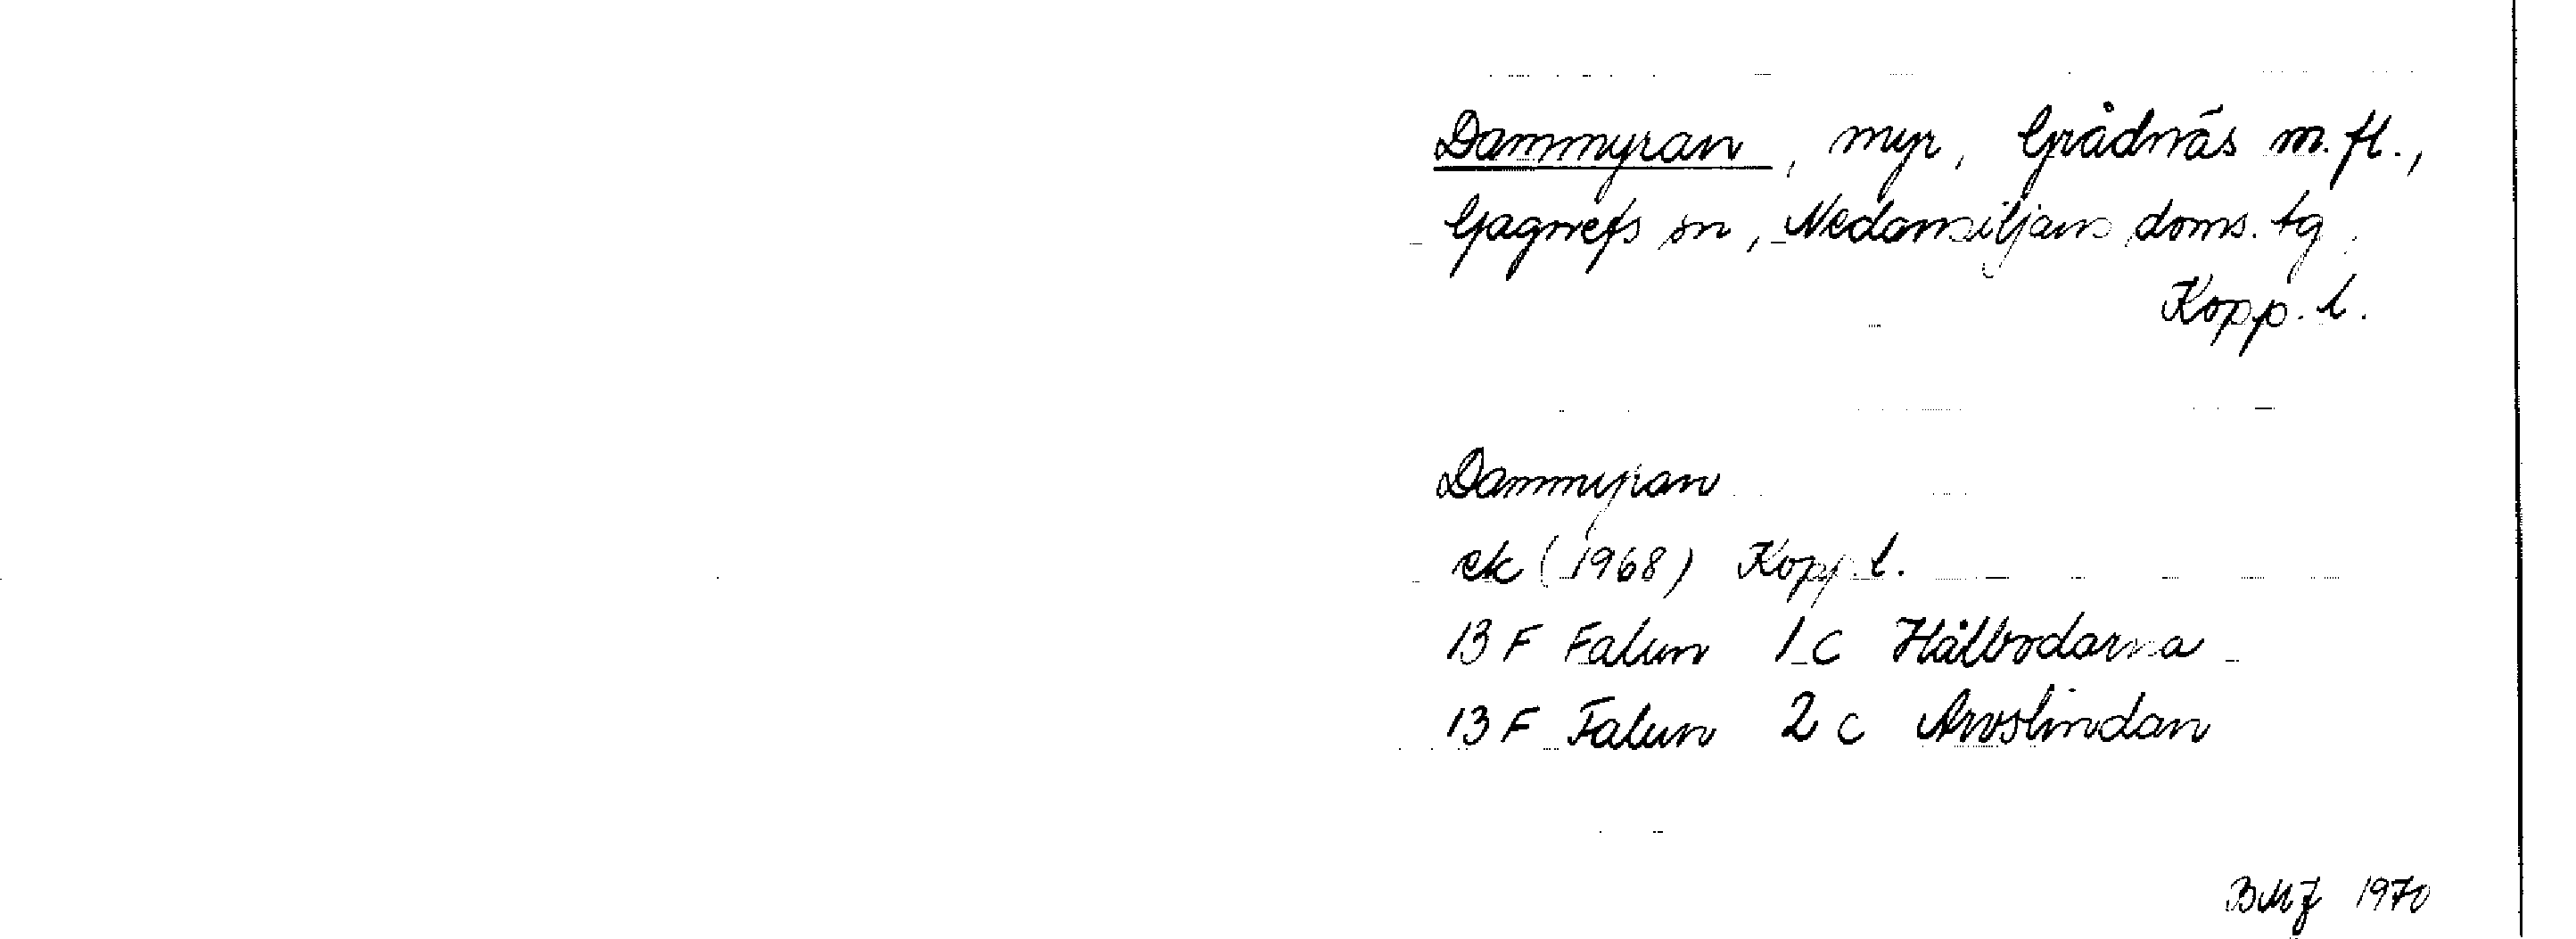 Dammyran, myr, Grådnäs m.fl.,
Gagnefs sn, Nedansiljans doms. tg,
Kopp. l.
Dammyran
ek (1968) Kopp. l.
13 F Falun 1 c Hålbodarna
13 F Falun 2 c Arvslindan
BMJ 1970